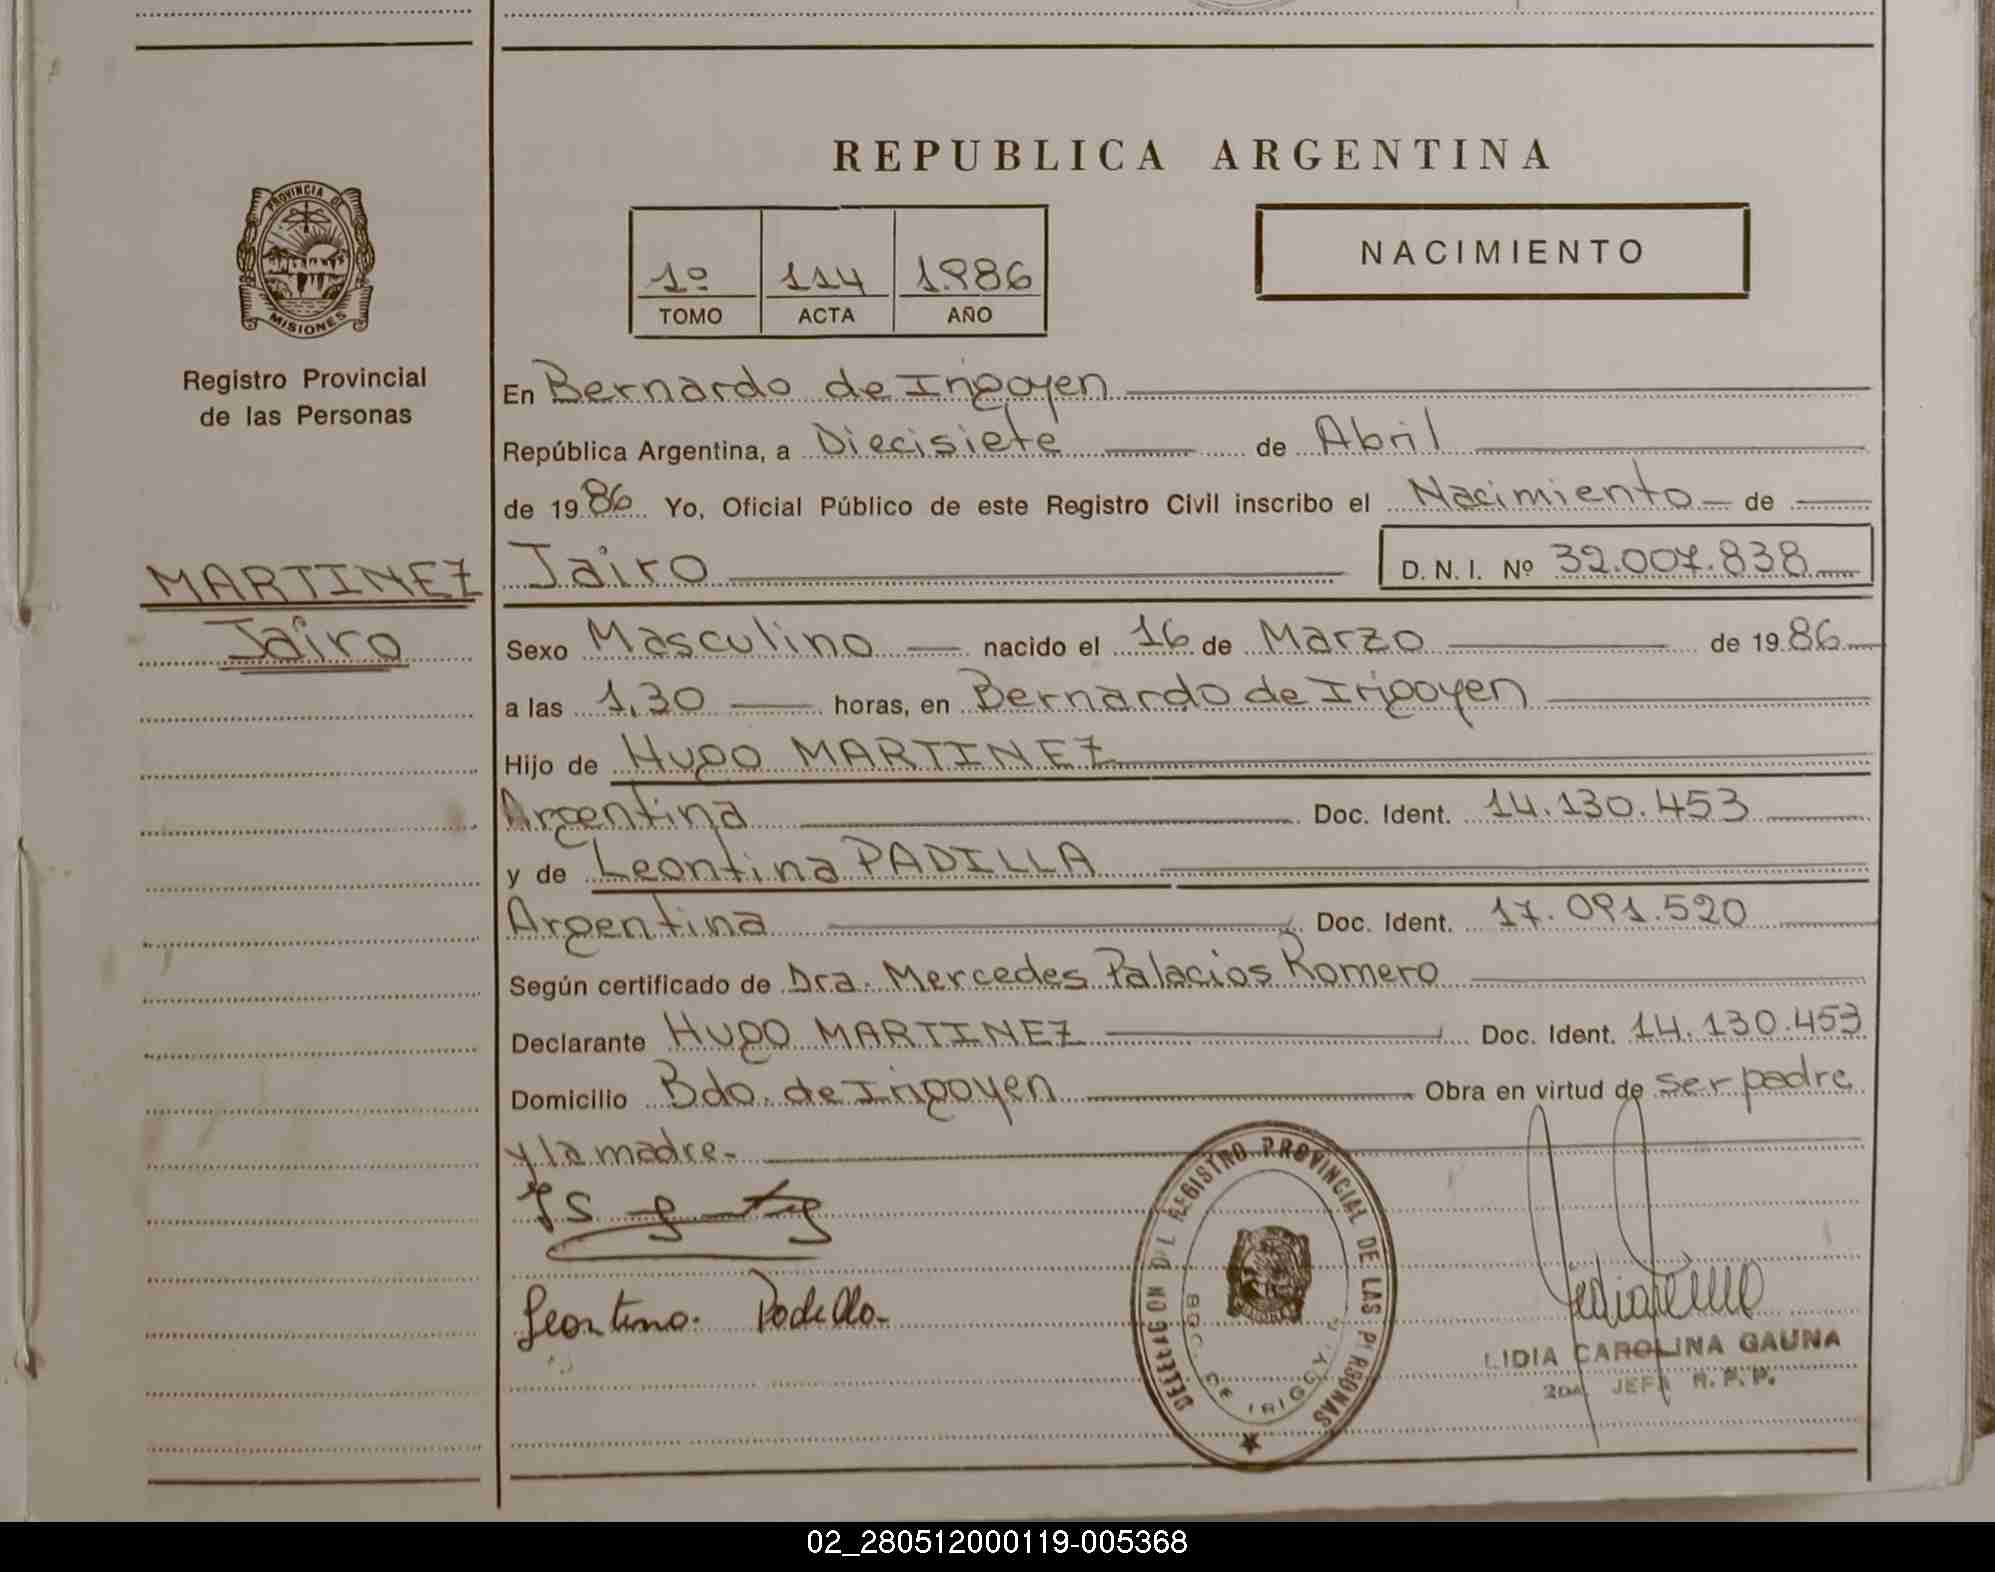 REPUBLICA ARGENTINA
PROVINCIA DE
MISIONES
Registro Provincial
de las Personas
1º 114 1.986
TOMO ACTA AÑO
NACIMIENTO
En Bernardo de Irigoyen
República Argentina, a Diecisiete de Abril
de 1986 Yo, Oficial Público de este Registro Civil inscribo el Nacimiento de
MARTINEZ
Jairo
Jairo D.N.I. Nº 32.007.838
Sexo Masculino nacido el 16 de Marzo de 1986
a las 1,30 horas, en Bernardo de Irigoyen
Hijo de Hugo MARTINEZ
Argentina Doc. Ident. 14.130.453
y de Leontina PADILLA
Argentina Doc. Ident. 17.091.520
Según certificado de Dra. Mercedes Palacios Romero
Declarante Hugo MARTINEZ Doc. Ident. 14.130.453
Domicilio Bdo. de Irigoyen Obra en virtud de ser padre
y la madre.-
Leontina Padilla
REGISTRO PROVINCIAL DE LAS PERSONAS
DE IRIGOY.
LIDIA CAROLINA GAUNA
2DA JEFA R.P.P.
02_280512000119-005368